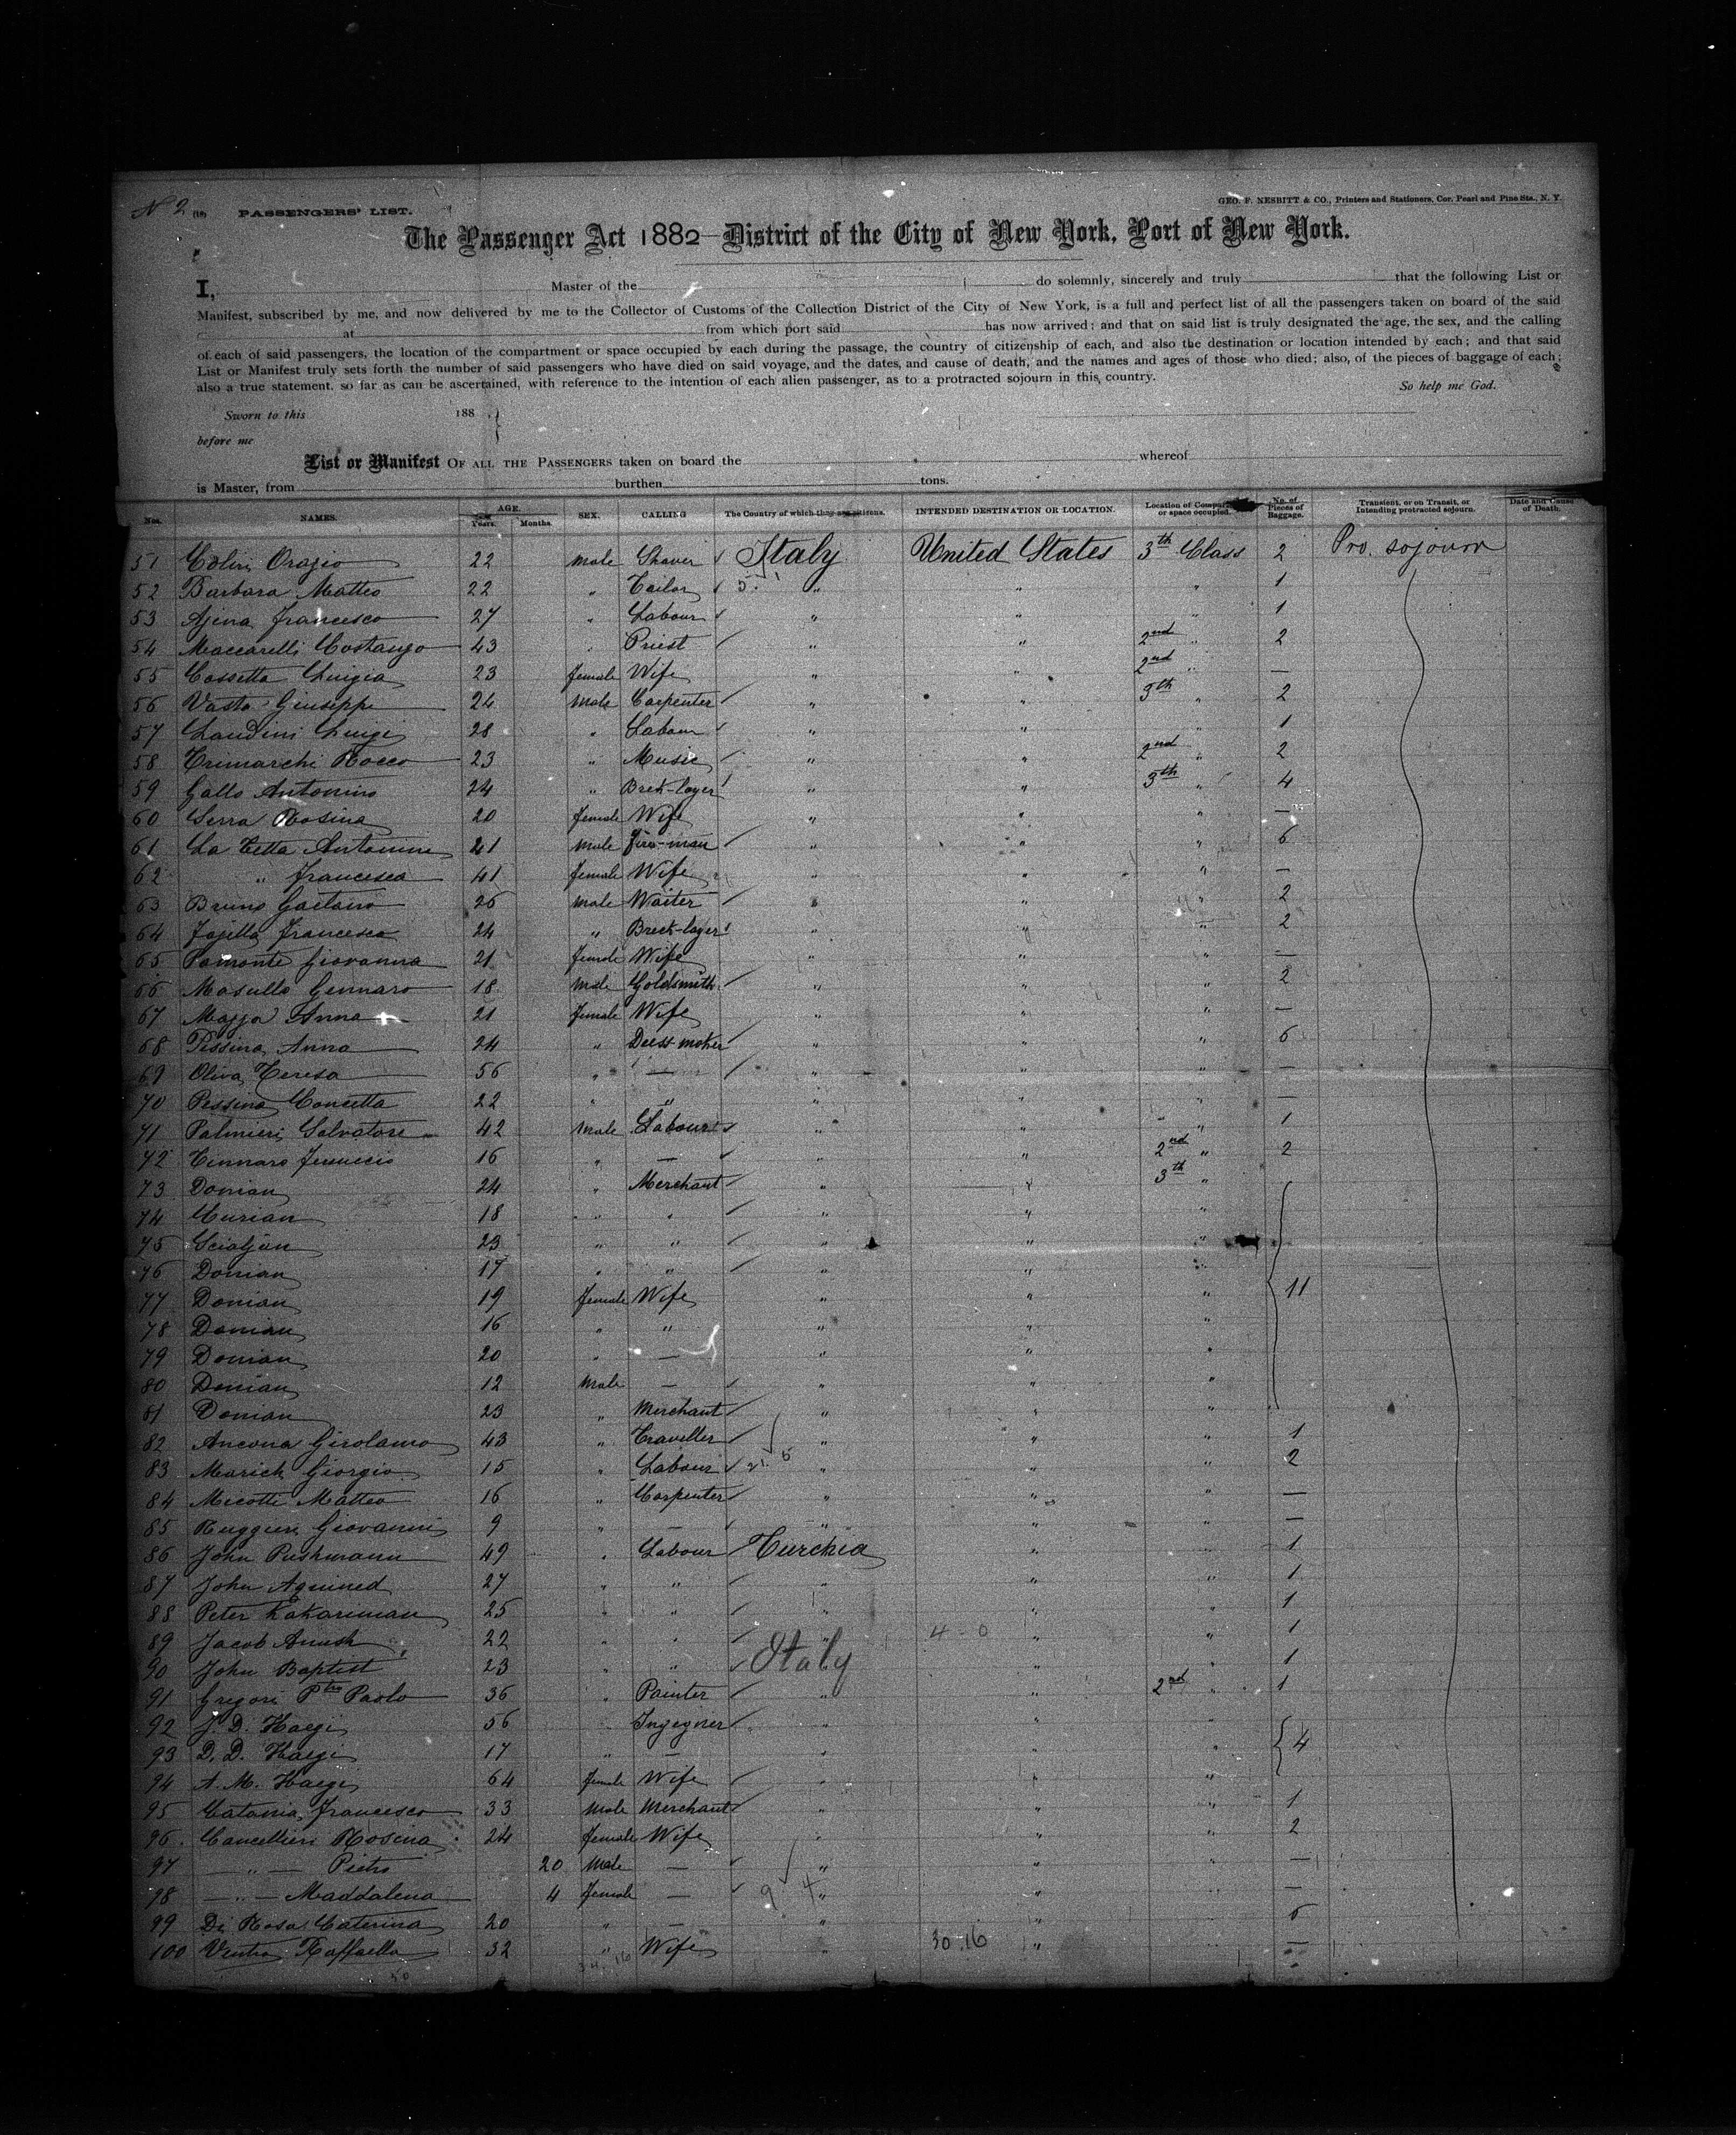 N 2 (18) PASSENGERS' LIST.
GEO. F. NESBITT & CO., Printers and Stationers, Cor. Pearl and Pine Sts., N. Y.
The Passenger Act 1882—District of the City of New York, Port of New York.
I, Master of the do solemnly, sincerely and truly that the following List or
Manifest, subscribed by me, and now delivered by me to the Collector of Customs of the Collection District of the City of New York, is a full and perfect list of all the passengers taken on board of the said
at from which port said has now arrived: and that on said list is truly designated the age, the sex, and the calling
of each of said passengers, the location of the compartment or space occupied by each during the passage, the country of citizenship of each, and also the destination or location intended by each; and that said
List or Manifest truly sets forth the number of said passengers who have died on said voyage, and the dates, and cause of death, and the names and ages of those who died; also, of the pieces of baggage of each;
also a true statement, so far as can be ascertained, with reference to the intention of each alien passenger, as to a protracted sojourn in this country. So help me God.
Sworn to this 188 .
before me
List or Manifest OF ALL THE PASSENGERS taken on board the whereof
is Master, from burthen tons.
Nos. NAMES. AGE. Years. Months. SEX. CALLING The Country of which they are citizens. INTENDED DESTINATION OR LOCATION. Location of or space occupied. No. of Pieces of Baggage. Transient, or on Transit, or Intending protracted sojourn. Date and Cause of Death.
51 Colin Orazio 22 male Shaver Italy United States 3th Class 2 Pro. sojourn
52 Barbara Matteo 22 " Tailor " " " 1
53 Ajena Francesco 27 " Labour " " 1
54 Maccarelli Costanzo 43 " Priest " " 2nd " 2
55 Cossetta Luigia 23 female Wife " " 2nd " —
56 Vasta Giuseppe 24 male Carpenter " " 3th " 2
57 Landini Luigi 28 " Labour " " 1
58 Trimarchi Rocco 23 " Music " " 2nd " 2
59 Gallo Antonino 24 " Brek-layer " " 3th " 4
60 Serra Rosina 20 female Wife " " " —
61 La Cetta Antonino 41 male Fire-man " " " 6
62 " Francesca 41 female Wife " " " —
63 Bruno Gaetano 26 male Waiter " " " 2
64 Francesco 24 " Breck-layer " " " 2
65 Pamonte Giovanna 21 female Wife " " " —
66 Masullo Gennaro 18 male Goldsmith " " " 2
67 Mazza Anna 21 female Wife " " " —
68 Pessina Anna 24 " Deess-maker " " " 6
69 Oliva Teresa 56 " — " " " —
70 Pessina Concetta 22 " " " " " —
71 Palmieri Salvatore 42 male Labour " " " 1
72 Ferruccio 16 " — " " 2nd " 2
73 Donian 24 " Merchant " " 3th "
74 Curian 18 " " " " "
75 Scialjan 23 " " " " "
76 Donian 17 " " " " "
77 Donian 19 female Wife " " " 11
78 Donian 16 " " " " "
79 Donian 20 " — " " "
80 Donian 12 male — " " "
81 Donian 23 " Merchant " " "
82 Ancona Girolamo 43 " Traveller " " " 1
83 Marich Giorgio 15 " Labour " " " 2
84 Micotti Matteo 16 " Carpenter " " " —
85 Ruggieri Giovanni 9 " — " " " —
86 John Pushmann 49 " Labour Turchia " " 1
87 John Aguined 27 " " " " " 1
88 Peter Kakariman 25 " " " " " 1
89 Jacob Anush 22 " " " 4-0 " " 1
90 John Baptist 23 " " Italy " " 1
91 Gregori Paolo 36 " Painter " " 2nd " 1
92 J. D. Haegi 56 " Ingegner " " "
93 D. D. Haegi 17 " — " " " 4
94 A. M. Haegi 64 female Wife " " "
95 Catania Francesco 33 male Merchant " " " 1
96 Cancellieri Rosina 24 female Wife " " " 2
97 — " — Pietro 20 male — " " " —
98 — " — Maddalena 4 female — 9 4 " " " —
99 Di Rosa Caterina 20 " — " " 6
100 Raffaella 32 " Wife " 30.16 " —